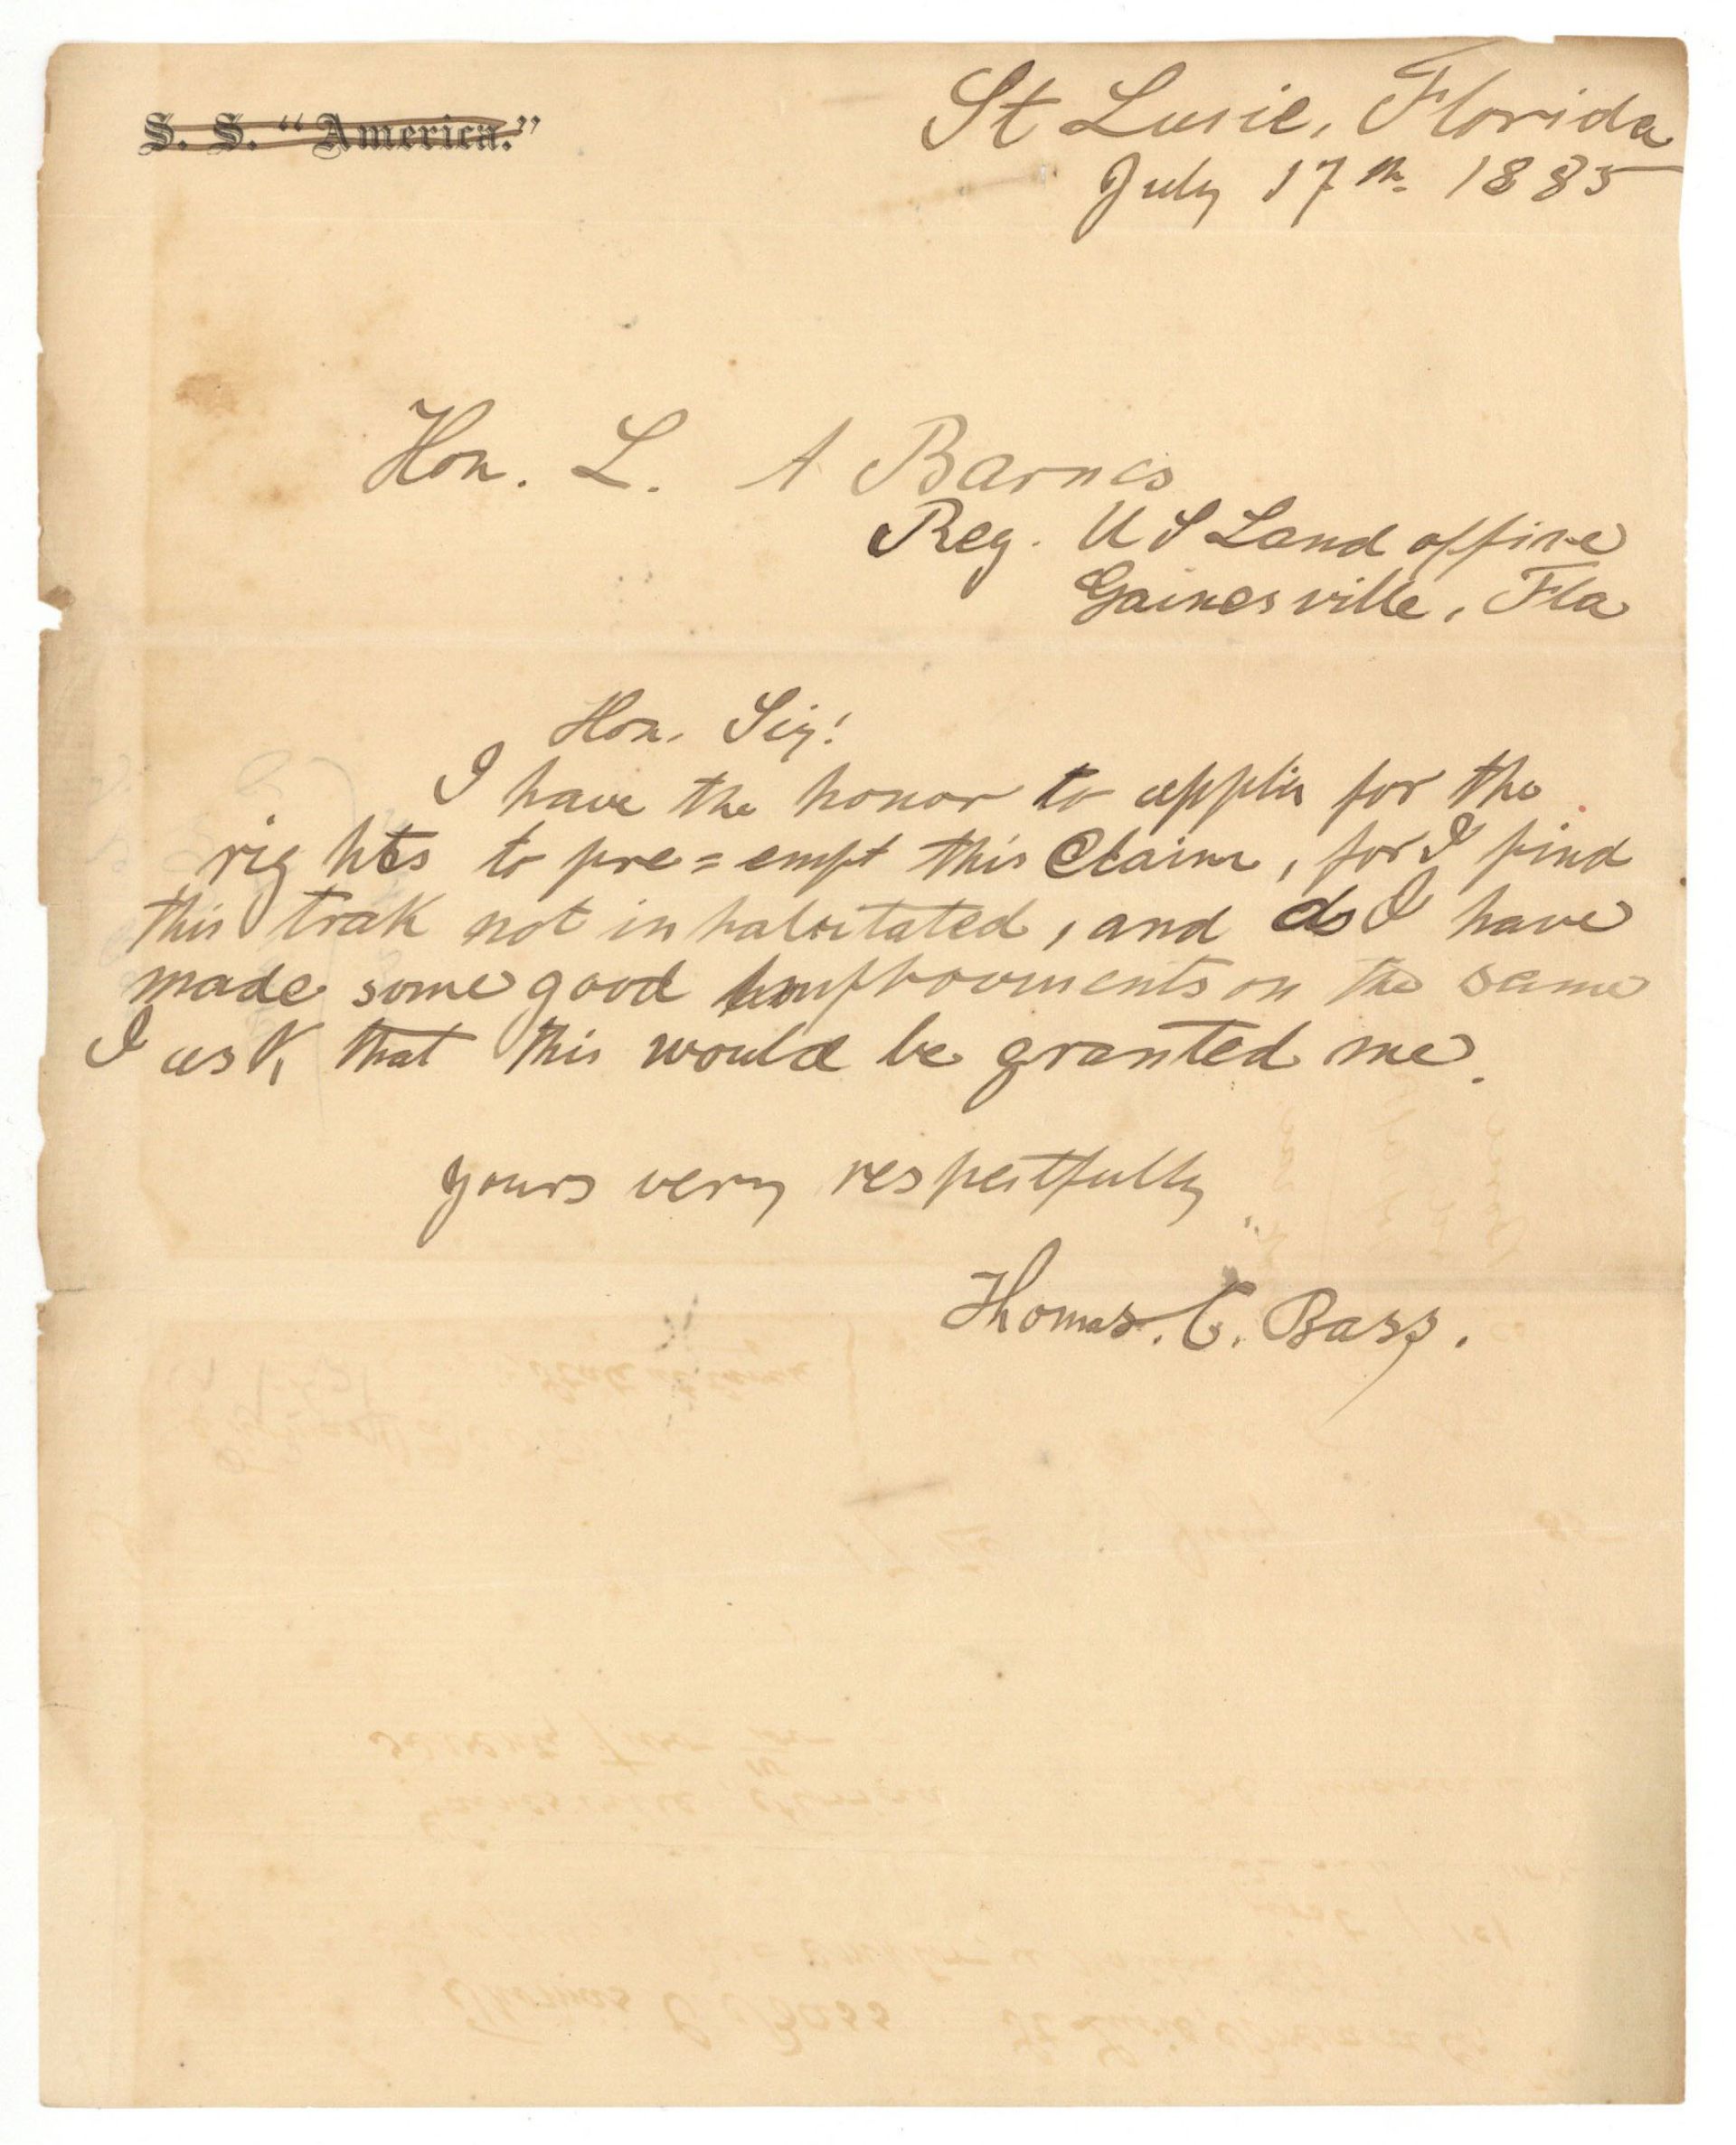 S. S. "America."
St Lucie, Florida
July 17th. 1885
Hon. L. A Barnes
Reg. U S Land office
Gainesville, Fla
Hon. Sir!
I have the honor to applie for the
rights to pre=empt this Claim, for I find
this trak not inhabitated, and as I have
made some good improovments on the same
I ask, that this would be granted me.
yours very respectfully
Thomas. C. Bass.